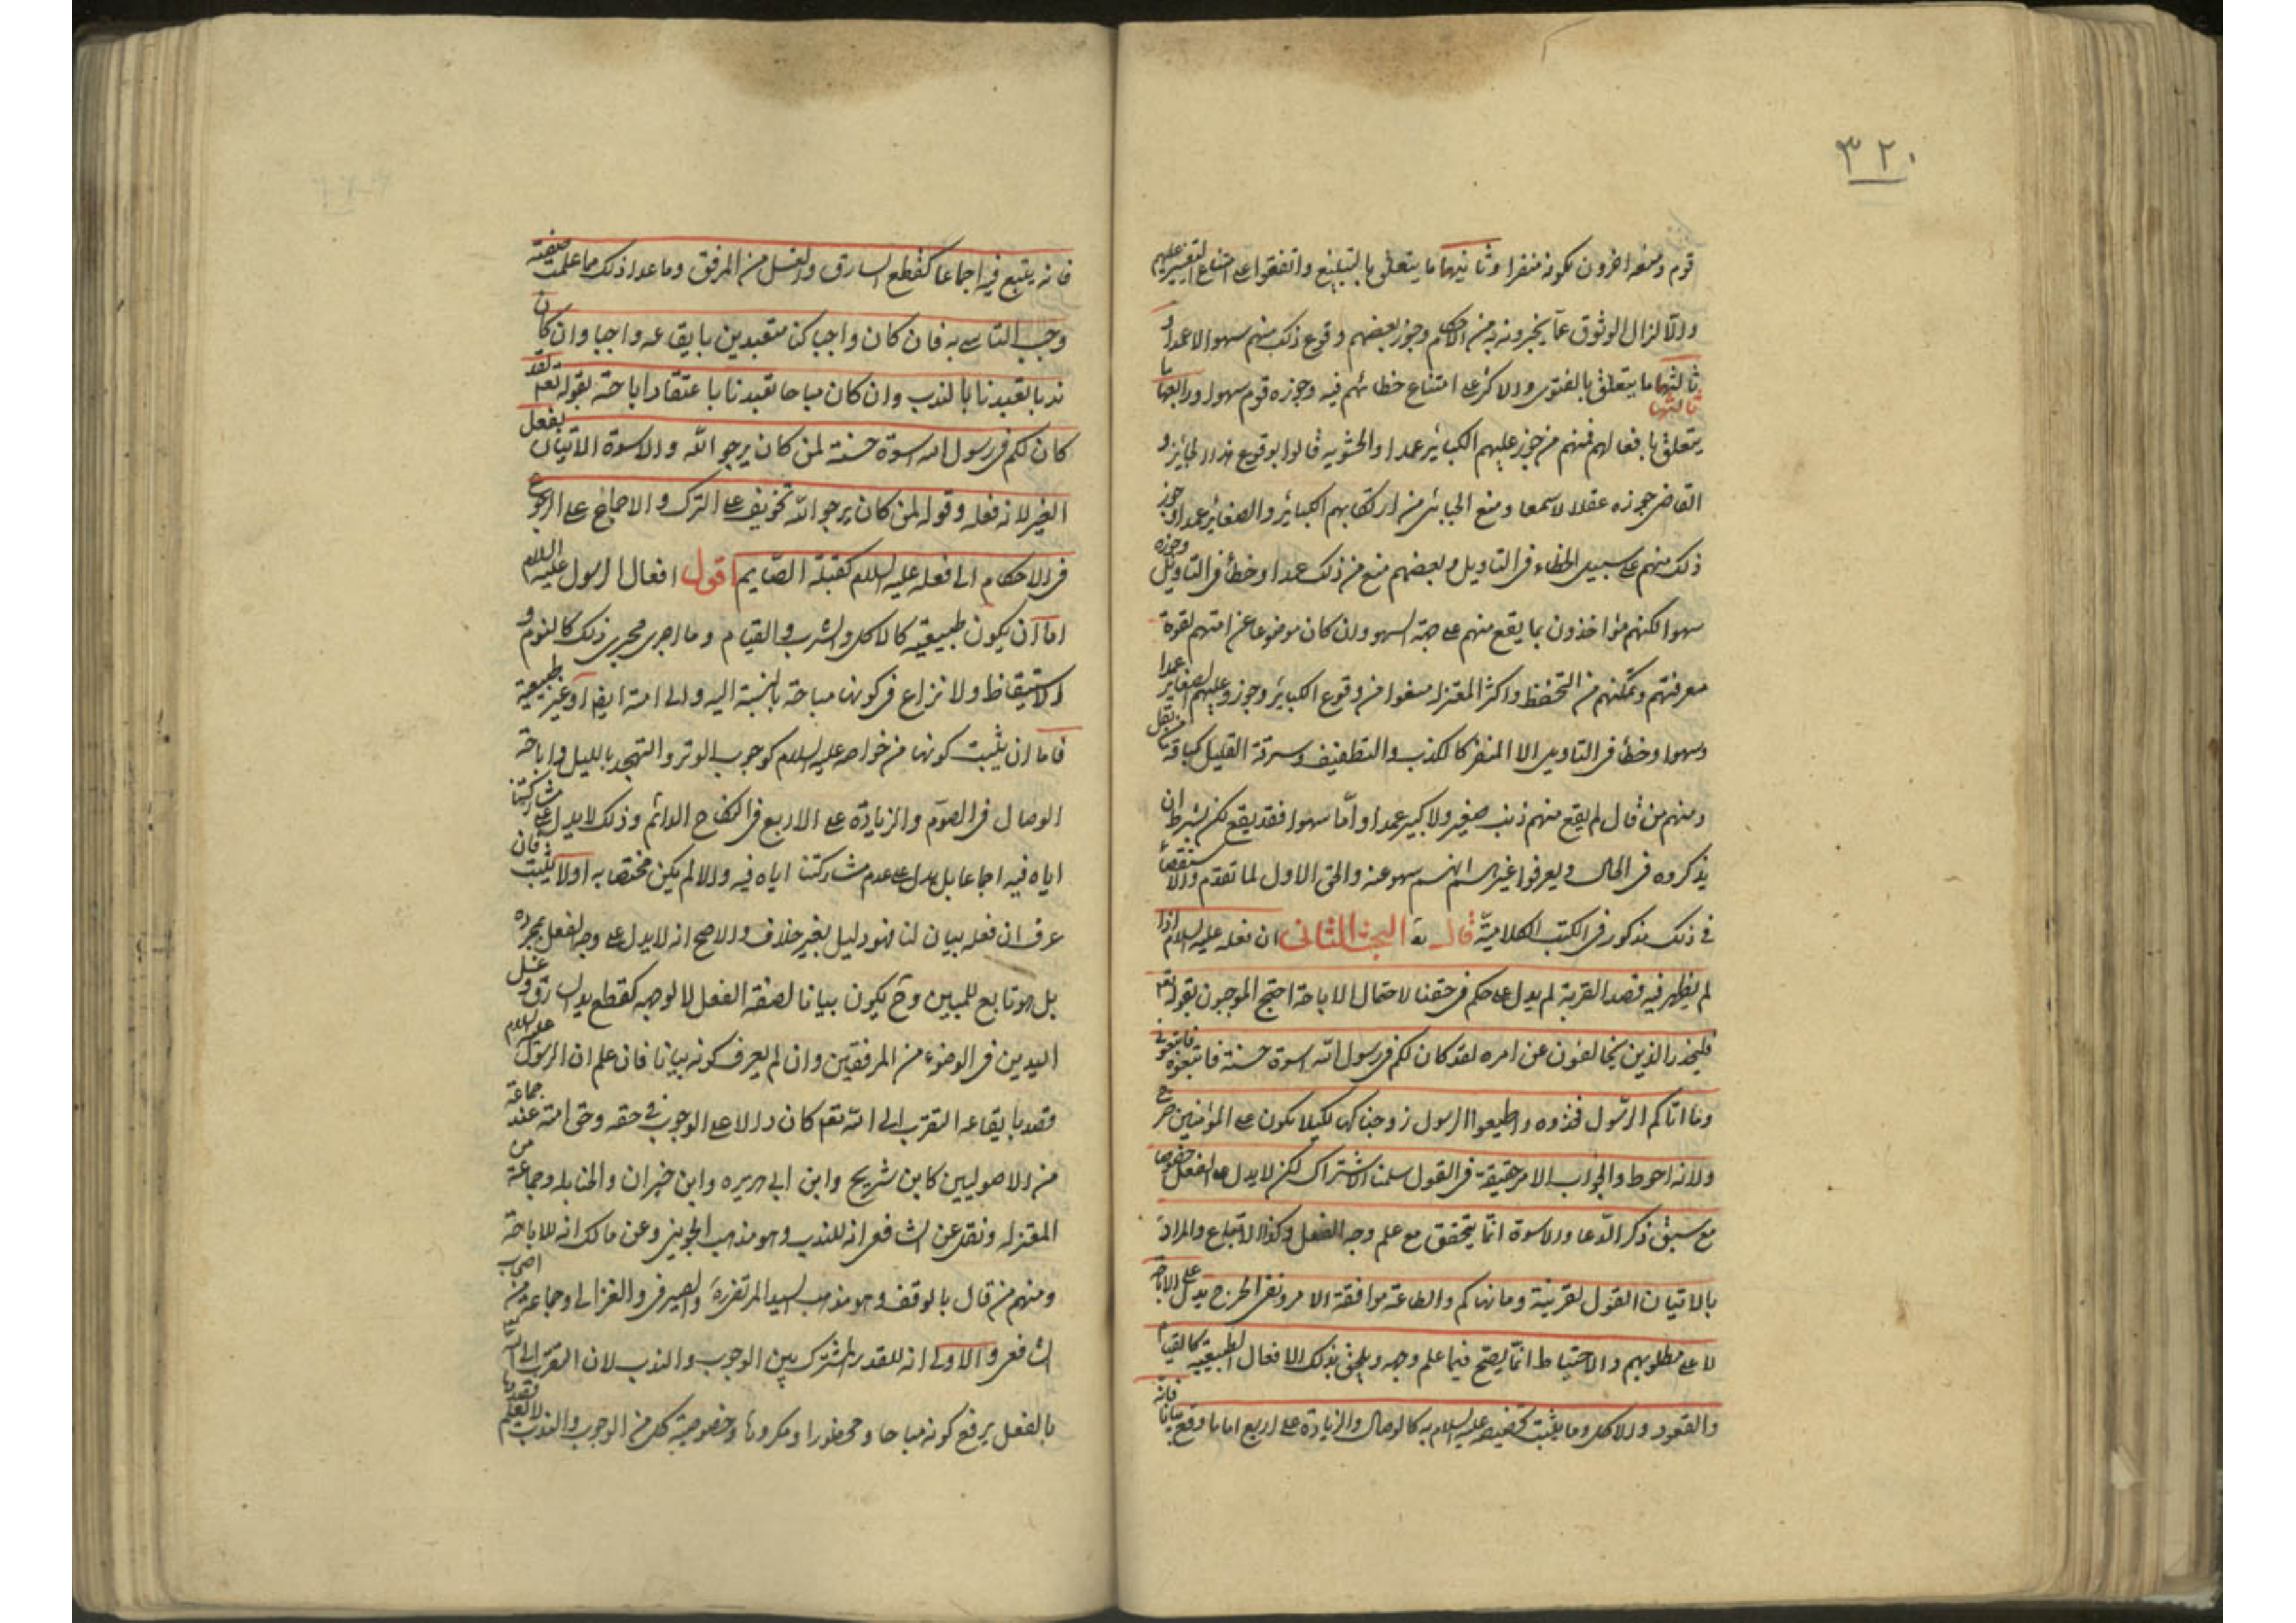 ٣٢٠
قوم ومنعه اخرون لكونه منفرا وثانيها ما يتعلق بالتبليغ واتفقوا على امتناع التغيير عليهم
والا لزال الوثوق عما يخبرونه به من الاحكام وجوز بعضهم وقوع ذلك منهم سهوا لا عمدا و
ثالثها ما يتعلق بالفتوى والاكثر على امتناع خطائهم فيه وجوزه قوم سهوا ورابعها ما
ثالثها
يتعلق بافعالهم فمنهم من جوز عليهم الكبائر عمدا والحشوية قالوا بوقوع هذا الجائز و
القاضي جوزه عقلا لا سمعا ومنع الجبائي من ارتكابهم الكبائر والصغائر عمدا وجوز
ذلك منهم على سبيل الخطاء في التاويل وبعضهم منع من ذلك عمدا وخطأ في التاويل وجوزه
سهوا لكنهم مؤاخذون بما يقع منهم على جهة السهو وان كان موضوعا عن امتهم لقوة
معرفتهم وتمكنهم من التحفظ واكثر المعتزله منعوا من وقوع الكبائر وجوزوا عليهم الصغاير عمدا
وسهوا وخطأ في التاويل الا المنفر كالكذب والتطفيف وسرقة القليل كباقة من بقل
ومنهم من قال لم يقع منهم ذنب صغير ولا كبير عمدا واما سهوا فقد يقع لكن بشرط ان
يذكروه في الحال ويعرفوا غيرهم انهم سهو عنه والحق الاول لما تقدم والاستقصاء
في ذلك مذكور في الكتب الكلامية قال البحث الثاني ان فعله عليه السلام اذا
لم يظهر فيه قصد القربة لم يدل على حكم في حقنا لاحتمال الاباحة احتج الموجبون بقوله تعم
فليحذر الذين يخالفون عن امره لقد كان لكم في رسول الله اسوة حسنة فاتبعوه فاتبعوني
وما اتاكم الرسول فخذوه واطيعوا الرسول زوجناكها لكيلا يكون على المؤمنين حرج
ولانه احوط والجواب الامر حقيقة في القول سلمنا الاشتراك لكن لا يدل على الفعل خصوصا
مع سبق ذكر الدعا والاسوة انما يتحقق مع علم وجه الفعل وكذا الاتباع والمراد
بالاتيان القول لقرينة وما نهاكم والطاعة موافقة الامر ونفي الحرج يدل على الاباحة
لا على مطلوبهم والاحتياط انما يصح فيما علم وجهه ويلحق بذلك الافعال الطبيعية كالقيام
والقعود والاكل وما يثبت تخصيصه عليه السلام به كالوصال والزيادة على اربع اما ما وقع بيانا فانه
فانه يتبع فيه اجماعا كقطع السارق والغسل من المرفق وما عدا ذلك مما علمت صفته
وجب التاسي به فان كان واجبا كنا متعبدين بايقاعه واجبا وان كان
ندبا تعبدنا بالندب وان كان مباحا تعبدنا باعتقاد اباحته بقوله تعم لقد
كان لكم في رسول الله اسوة حسنة لمن كان يرجو الله والاسوة الاتيان بفعل
الغير لانه فعله وقوله لمن كان يرجو الله تخويف على الترك والاجماع على الرجوع
في الاحكام الى فعله عليه السلام كقبلة الصايم اقول افعال الرسول عليه السلام
اما ان يكون طبيعية كالاكل والشرب والقيام وما اجرى مجرى ذلك كالنوم و
الاستيقاظ ولا نزاع في كونها مباحة بالنسبة اليه والى امته ايضا او غير طبيعية
فاما ان يثبت كونها من خواصه عليه السلام كوجوب الوتر والتهجد بالليل واباحة
الوصال في الصوم والزيادة على الاربع في النكاح الدائم وذلك لا يدل على مشاركتنا
اياه فيه اجماعا بل يدل على عدم مشاركتنا اياه فيه والا لم يكن مختصا به اولا يثبت فان
عرف ان فعله بيان لنا فهو دليل بغير خلاف والاصح انه لا يدل على وجه الفعل بمجرده
بل هو تابع للمبين وح يكون بيانا لصفة الفعل لا لوجهه كقطع يد السارق وغسل
اليدين في الوضوء من المرفقين وان لم يعرف كونه بيانا فان علم ان الرسول عليه السلام
قصد بايقاعه التقرب الى الله تعم كان دالا على الوجوب في حقه وحق امته عند جماعة
من الاصوليين كابن شريح وابن ابي هريره وابن خيران والحنابله وجماعة من
المعتزله ونقل عن الشافعي انه للندب وهو مذهب الجويني وعن مالك انه للاباحة
ومنهم من قال بالوقف وهو مذهب السيد المرتضى والصيرفي والغزالي وجماعة من اصحاب
الشافعي والاولى انه للقدر المشترك بين الوجوب والندب لان التقرب الى الله
بالفعل يرفع كونه مباحا ومحظورا ومكروها وخصوصية كل من الوجوب والندب لا تعلم